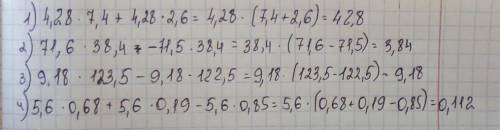 1) 4,28 · 7,4 + 4,28 · 2,6 = 4,28 · (7,4+2,6) = 42,8
2) 71,6 · 38,4 - 71,5 · 38,4 = 38,4 · (71,6 - 71,5) = 3,84
3) 9,18 · 123,5 - 9,18 - 122,5 = 9,18 · (123,5 - 122,5) - 9,18
4) 5,6 · 0,68 + 5,6 · 0,19 - 5,6 · 0,85 = 5,6 · (0,68 + 0,19 - 0,85) = 0,112